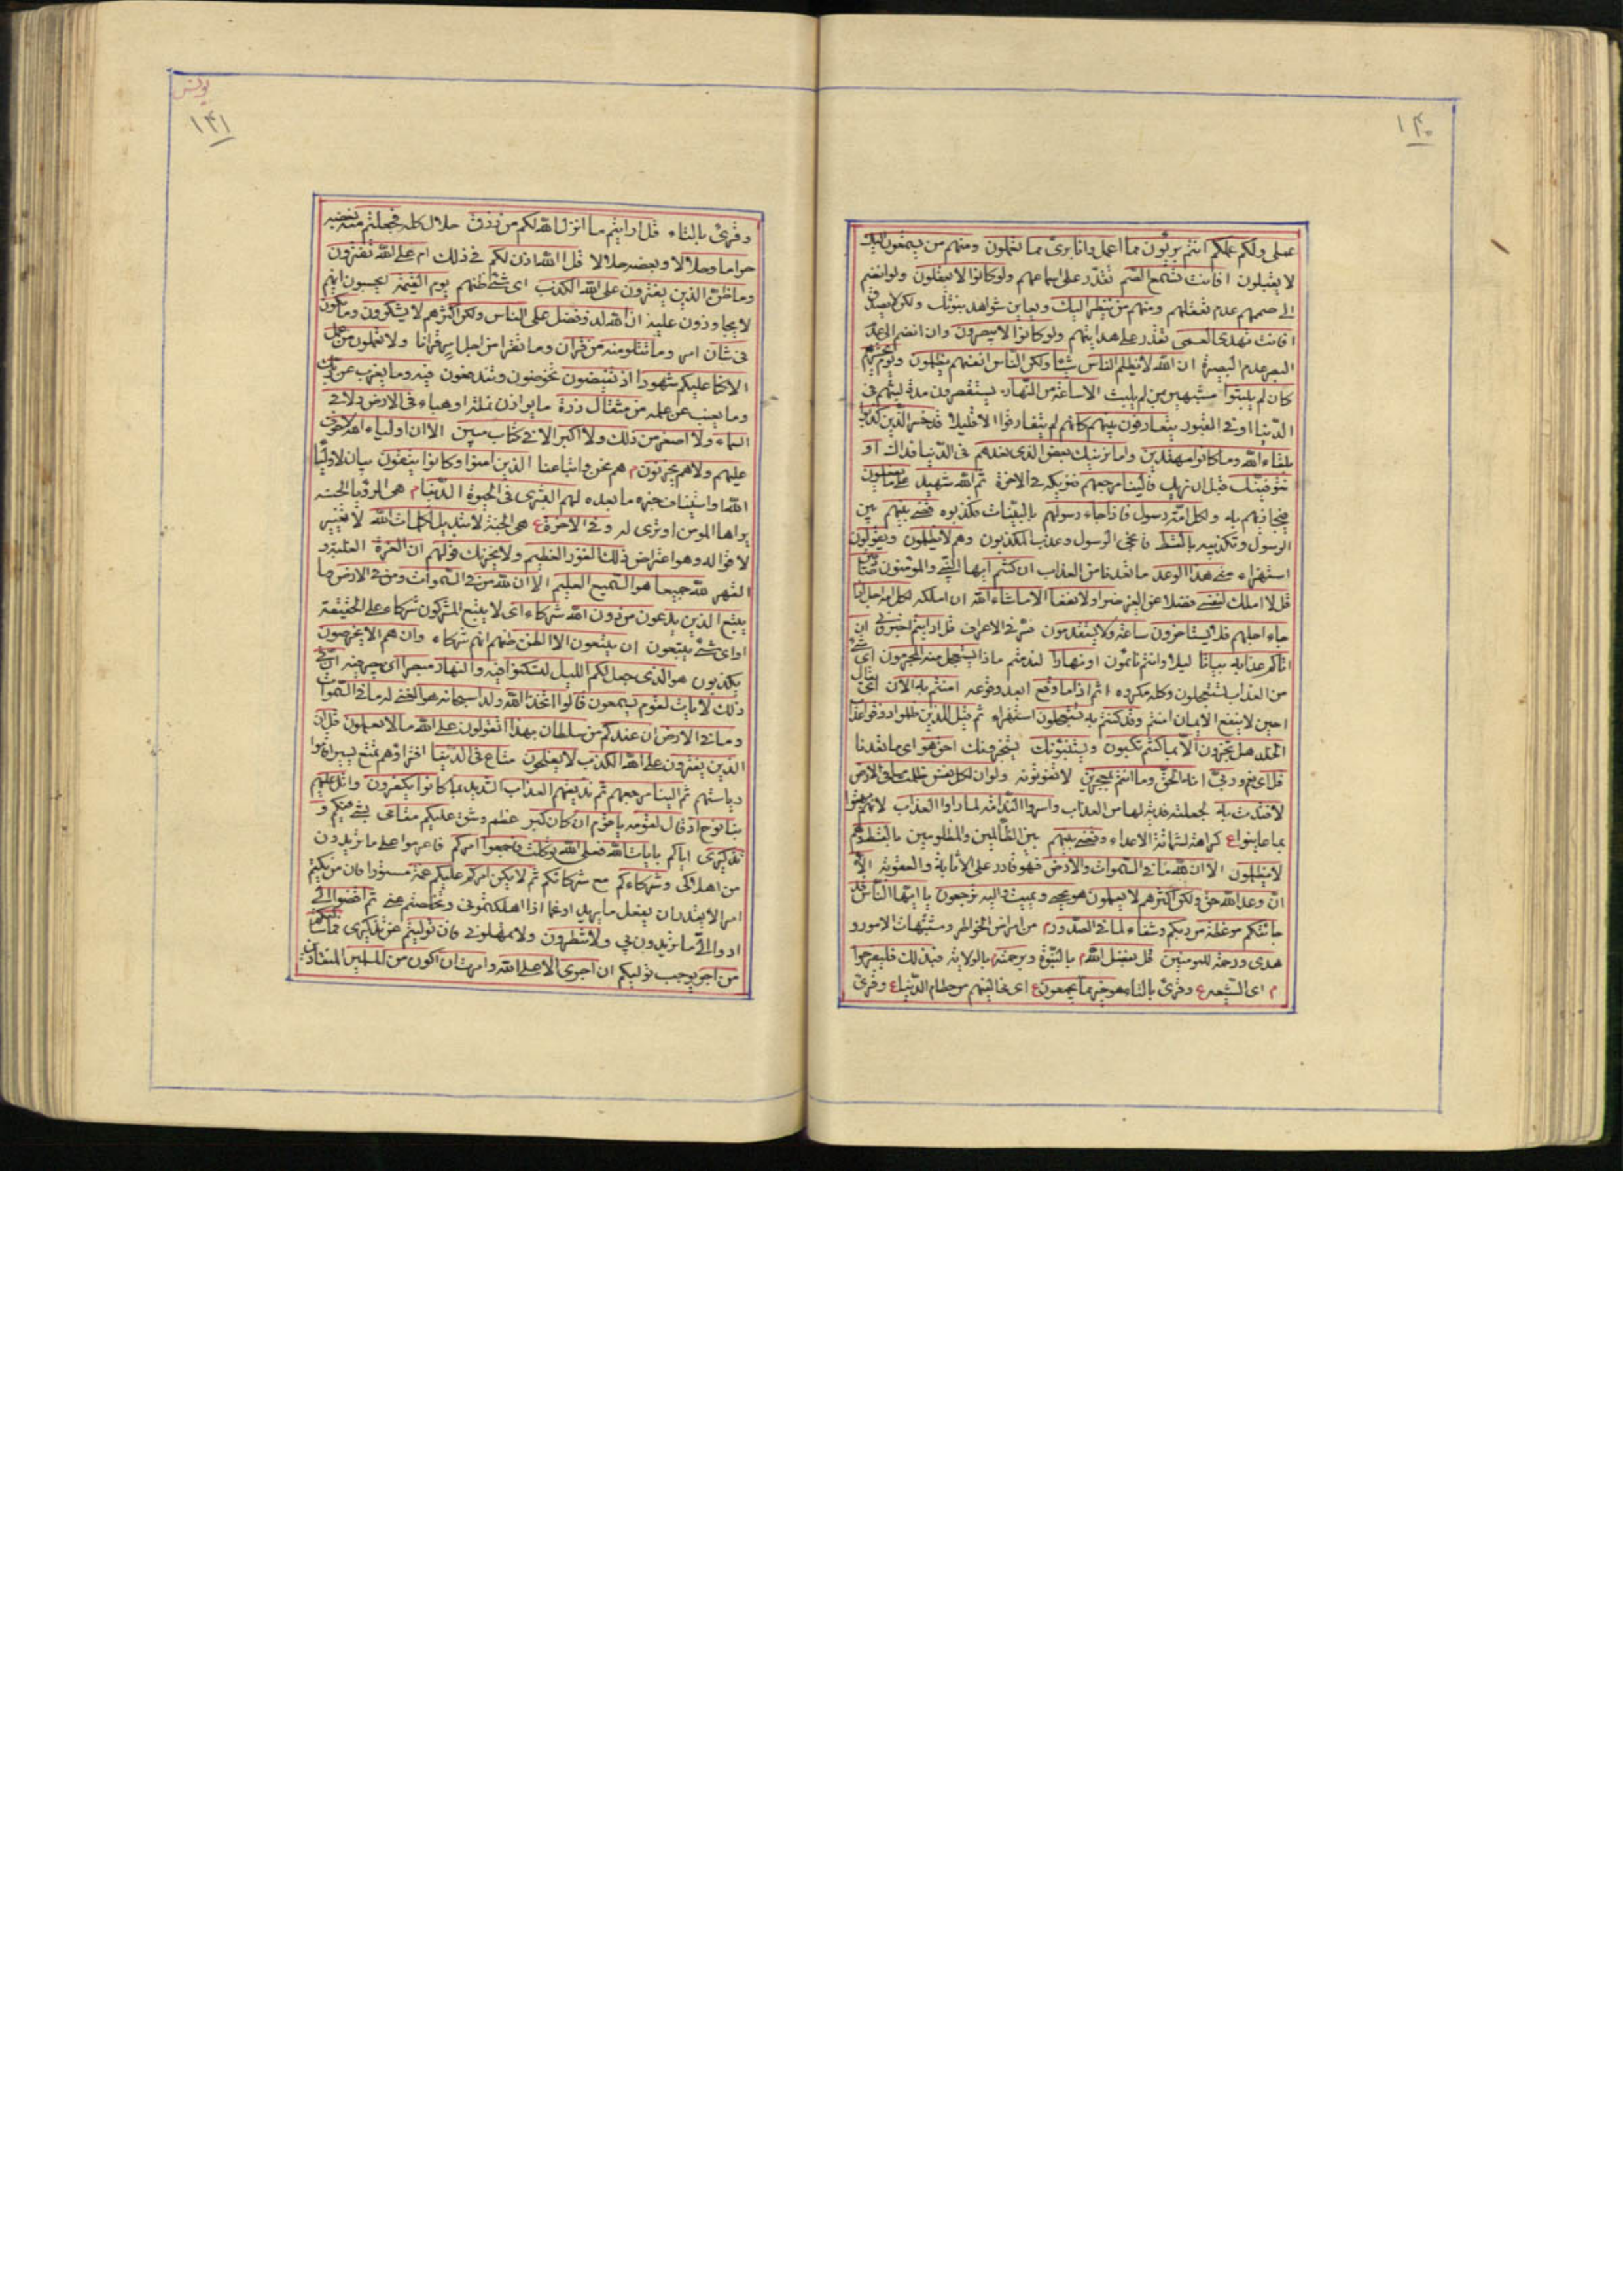 ١٤٠
عملى ولكم عملكم انتم بريئون مما اعمل وانا برئ مما تعملون ومنهم من يستمعون اليك
لا يقبلون افانت تسمع الصم تقدر على اسماعهم ولو كانوا لا يعقلون ولو انضم
الى صممهم عدم تعقلهم ومنهم من ينظر اليك ويعاين شواهد نبوتك ولكن لا يصدق
افانت تهدى العمى تقدر على هدايتهم ولو كانوا لا يبصرون وان انضم الى عدم
البصر عدم البصيرة ان الله لا يظلم الناس شيئا ولكن الناس انفسهم يظلمون ويوم يحشرهم
كان لم يلبثوا مشبهين من لم يلبث الا ساعة من النهار يستقصرون مدة لبثهم فى
الدنيا او فى القبور يتعارفون بينهم كانهم لم يتفارقوا الا قليلا قد خسر الذين كذبوا
بلقاء الله وما كانوا مهتدين واما نرينك بعض الذى نعدهم فى الدنيا فذاك او
نتوفينك قبل ان نريك فالينا مرجعهم فنريكه فى الاخرة ثم الله شهيد على ما يفعلون
فيجازيهم به ولكل امة رسول فاذا جاء رسولهم بالبينات فكذبوه قضى بينهم بين
الرسول وتكذيبه بالقسط فانجى الرسول وعذب المكذبون وهم لا يظلمون ويقولون
استهزاء متى هذا الوعد ما تعدنا من العذاب ان كنتم ايها النبى والمؤمنون صادقين
قل لا املك لنفسى فضلا عن الغير ضرا ولا نفعا الا ما شاء الله ان املكه لكل امة اجل اذا
جاء اجلهم فلا يستاخرون ساعة ولا يستقدمون فسر فى الاعراف قل ارايتم اخبرونى ان
اتاكم عذابه بياتا ليلا وانتم نائمون او نهارا لندمتم ماذا يستعجل منه المجرمون اى شئ
من العذاب يستعجلون وكله مكروه اثم اذا ما وقع ابعد وقوعه امنتم به الان اى يقال
احين لا ينفع الايمان امنتم وقد كنتم به تستعجلون استهزاء ثم قيل للذين ظلموا ذوقوا عذاب
الخلد هل تجزون الا بما كنتم تكسبون ويستنبؤنك يستخبرونك احق هو اى ما تعدنا
قل اى نعم وربى انه لحق وما انتم بمعجزين لا تفوتونه ولو ان لكل نفس ظلمت ما فى الارض
لافتدت به لجعلته فدية لها من العذاب واسروا الندامة لما راوا العذاب لانهم بهتوا
بما عاينوا ع كراهة لشماتة الاعداء وقضى بينهم بين الظالمين والمظلومين بالقسط وهم
لا يظلمون الا ان لله ما فى السموات والارض فهو قادر على الاثابة والعقوبة الا
ان وعد الله حق ولكن اكثرهم لا يعلمون هو يحيى ويميت واليه ترجعون يا ايها الناس قد
جائتكم موعظة من ربكم وشفاء لما فى الصدور م من امراض الخواطر ومشتبهات الامور و
هدى ورحمة للمومنين قل بفضل الله م بالنبوة وبرحمته م بالولاية فبذلك فليفرحوا
م اى الشيعه ع وقرئ بالتاء هو خير مما يجمعون ع اى مخالفيهم من حطام الدنيا ع وقرئ
يونس
١٤١
وقرئ بالتاء قل ارايتم ما انزل الله لكم من رزق حلال كله فجعلتم منه بعضه
حراما وحلالا وبعضه حلالا قل الله اذن لكم فى ذلك ام على الله تفترون
وما ظن الذين يفترون على الله الكذب اى شئ ظنهم يوم القيمة ايحسبون انهم
لا يجازون عليه ان الله لذو فضل على الناس ولكن اكثرهم لا يشكرون وما تكون
فى شان امر وما تتلو منه من قران وما تقرا من اجله من قرانا ولا تعملون من عمل
الا كنا عليكم شهودا اذ تفيضون تخوضون وتندفعون فيه وما يعزب عن ربك
وما يغيب عن علمه من مثقال ذرة ما يوازن نملة او هباء فى الارض ولا فى
السماء ولا اصغر من ذلك ولا اكبر الا فى كتاب مبين الا ان اولياء الله لا خوف
عليهم ولا هم يحزنون م هم نحن واتباعنا الذين امنوا وكانوا يتقون بيان لاولياء
الله او استيناف خبره ما بعده لهم البشرى فى الحيوة الدنيا م هى الرؤيا الحسنه
يراها المومن او ترى له وفى الاخرة ع هى الجنة لا تبديل لكلمات الله لا تغيير
لاقواله وهو اعتراض ذلك الفوز العظيم ولا يحزنك قولهم ان العزة الغلبة و
القهر لله جميعا هو السميع العليم الا ان لله من فى السموات ومن فى الارض وما
يتبع الذين يدعون من دون الله شركاء اى لا يتبع المشركون شركاء على الحقيقة
او اى شئ يتبعون ان يتبعون الا الظن ظنهم انهم شركاء وان هم الا يخرصون
يكذبون هو الذى جعل لكم الليل لتسكنوا فيه والنهار مبصرا اى يبصر فيه ان فى
ذلك لايات لقوم يسمعون قالوا اتخذ الله ولدا سبحانه هو الغنى له ما فى السموات
وما فى الارض ان عندكم من سلطان بهذا اتقولون على الله ما لا تعلمون قل ان
الذين يفترون على الله الكذب لا يفلحون متاع فى الدنيا افتراؤهم تمتع يسير
رياستهم ثم الينا مرجعهم ثم نذيقهم العذاب الشديد بما كانوا يكفرون واتل عليهم
نبا نوح اذ قال لقومه يا قوم ان كان كبر عظم وشق عليكم مقامى بينكم و
تذكيرى اياكم بايات الله فعلى الله توكلت فاجمعوا امركم فاعزموا على ما تريدون
من اهلاكى وشركاءكم مع شركائكم ثم لا يكن امركم عليكم غمة مستورا
امرا لا يقدر ان يفعل ما يريد او غما اذا اهلكتمونى وتخلصتم منى ثم اقضوا الى
ادوا الى ما تريدون بى ولا تنظرون ولا تمهلونى فان توليتم عن تذكيرى فما سالتكم
من اجر يوجب توليكم ان اجرى الا على الله وامرت ان اكون من المسلمين المنقادين